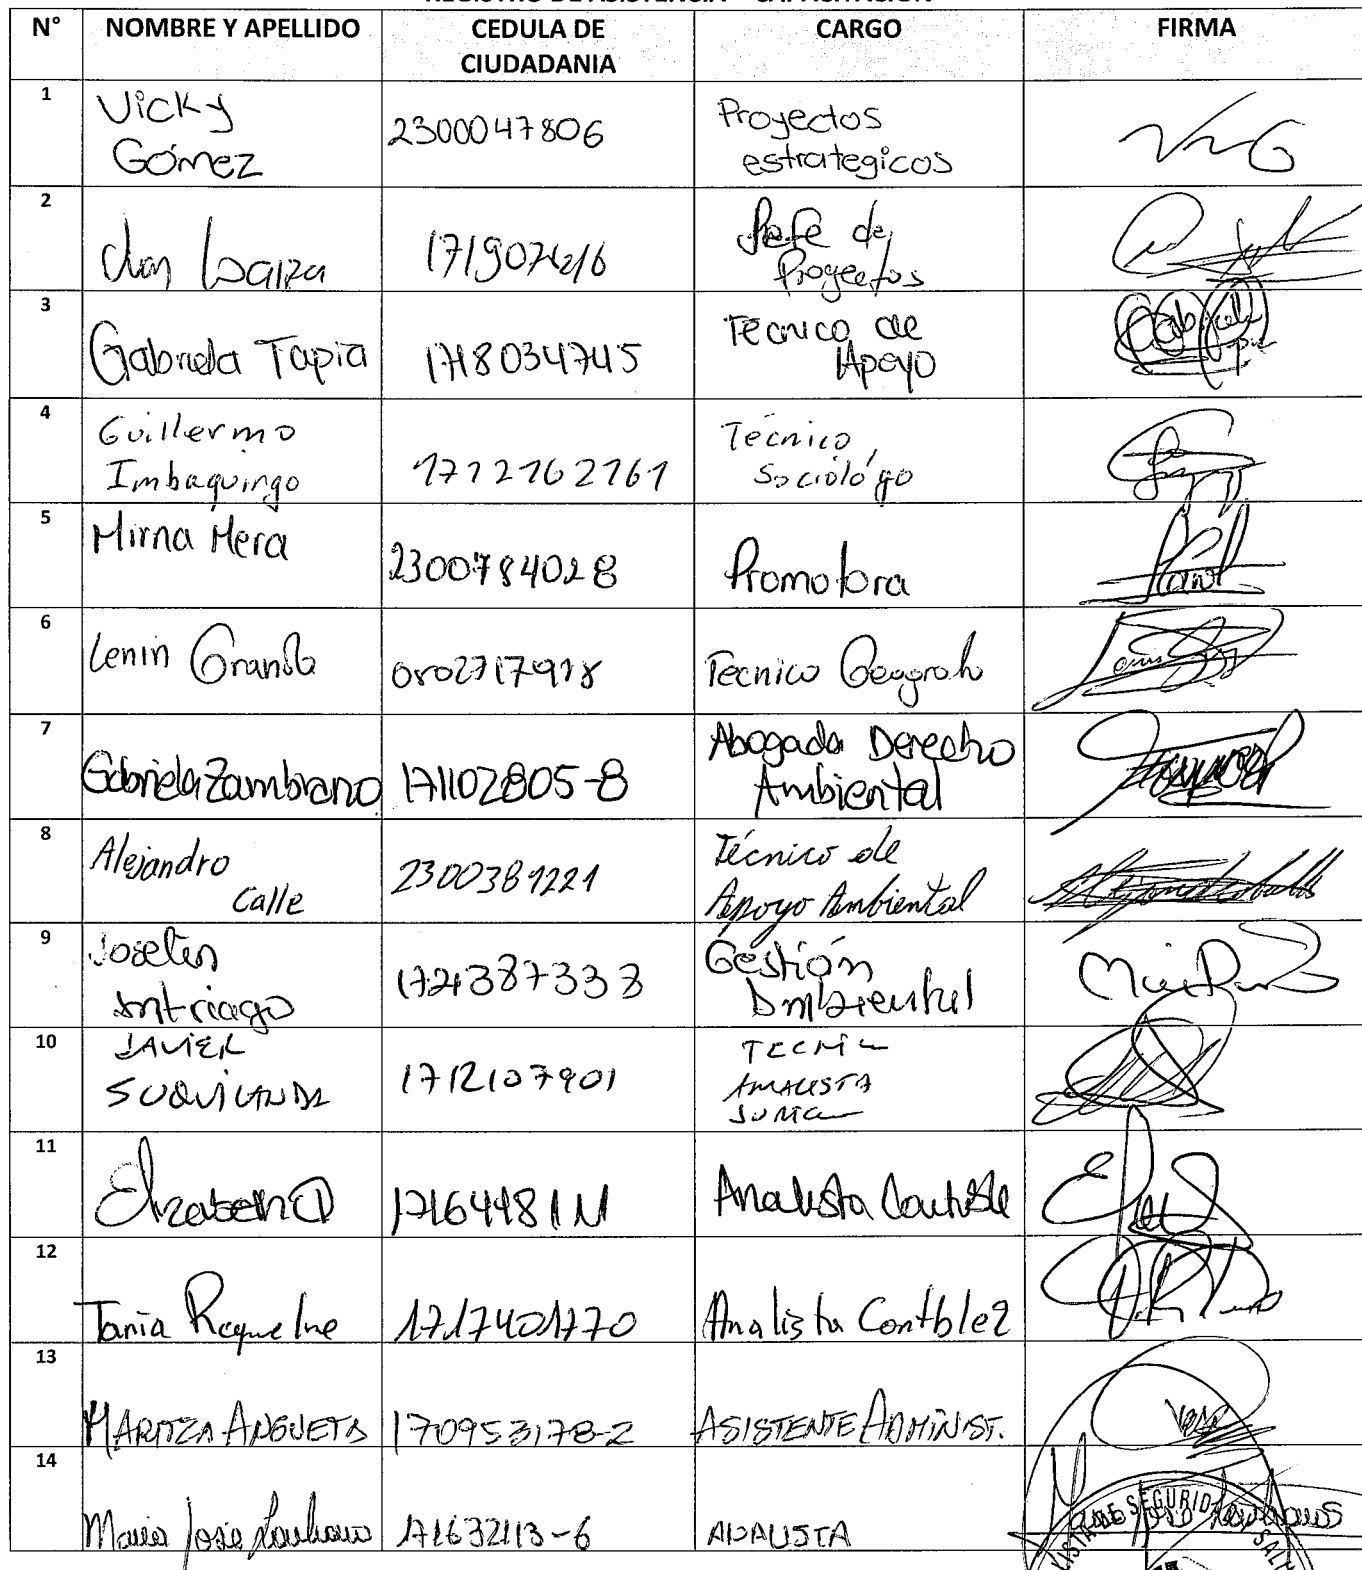 REGISTRO DE ASISTENCIA – CAPACITACION
N° NOMBRE Y APELLIDO CEDULA DE CIUDADANIA CARGO FIRMA
1 Vicky Gómez 2300047806 Proyectos estrategicos
2 Jefe de Proyectos
3 Gabriela Tapia 1718034745 Tecnico de Apoyo
4 Guillermo Imbaquingo 1712162761 Técnico Sociológo
5 Mirna Mera 2300784028 Promotora
6 Lenin Granda Tecnico Geografo
7 Gabriela Zambrano 171102805-8 Abogada Derecho Ambiental
8 Alejandro Calle 2300381221 Técnico de Apoyo Ambiental
9 Intriago 1724387333 Gestión Ambiental
10 JAVIER SUQUILANDA 1712107901 ANALISTA
11 Analista Contable
12 Tania 1717401770 Analista Contble2
13 MARITZA ANGUETA 170953178-2 ASISTENTE ADMINIST.
14 Maria José 171632113-6 ANALISTA
DE SEGURID